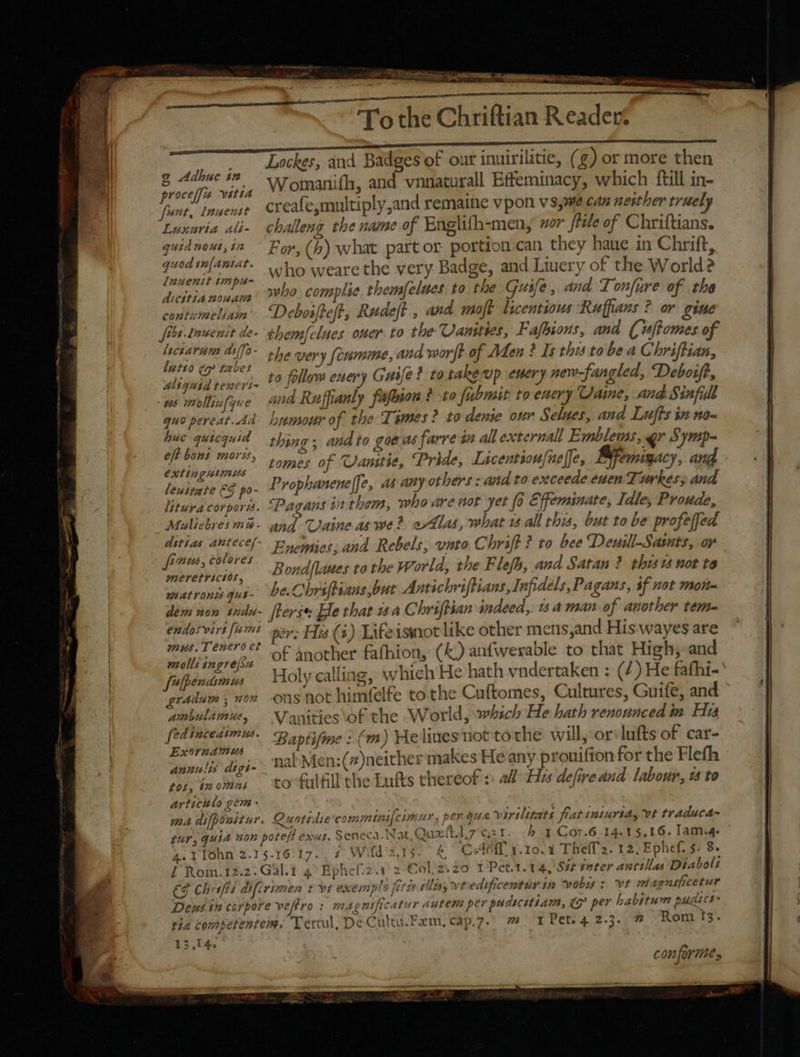 To the Chriſtian Reader.
Lockes, and Badges of our inuirilitie, (g) or more then
Womaniſh, and vnnaturall Effeminacy, which ſtill in-
creaſe, multiply, and remaine vpon vs, we can neither truely
challeng the name of Engliſh-men, nor ſtile of Chriſtians.
For, (h) what part or portion can they haue in Chriſt,
who weare the very Badge, and Liuery of the World?
who complie themſelues to the Guiſe, and Tonſure of the
Deboiſteſt, Rudeſt, and moſt licentious Ruffians? or giue
themſelues ouer to the Vanities, Faſhions, and Cuſtomes of
the very ſcumme, and worſt of Men? Is this to be a Chriſtian,
to follow euery Guiſe? to take vp euery new-fangled, Deboiſt,
and Ruffianly faſhion? to ſubmit to euery Vaine, and Sinfull
humour of the Times? to denie our Selues, and Luſts in no-
thing; and to goe as farre in all externall Emblems, or Symp-
tomes of Vanitie, Pride, Licentiouſneſſe, Effeminacy, and
Prophaneneſſe, as any others: and to exceede euen Turkes, and
Pagans in them, who are not yet ſo Effeminate, Idle, Proude,
and Vaine as we? Alas, what is all this, but to be profeſſed
Enemies, and Rebels, vnto Chriſt? to bee Deuill-Saints, or
Bondſlaues to the World, the Fleſh, and Satan? this is not to
be Chriſtians, but Antichriſtians, Infidels, Pagans, if not mon-
ſters: He that is a Chriſtian indeed, is a man of another tem-
per: His (i) Life is not like other mens, and His wayes are
of another faſhion, (k) anſwerable to that High, and
Holy calling, which He hath vndertaken: (l) He faſhi-
ons not himſelfe to the Cuſtomes, Cultures, Guiſe, and
Vanities of the World, which He hath renounced in His
Baptiſme: (m) He liues not to the will, or luſts of car-
nal Men: (n) neither makes He any prouiſion for the Fleſh
to fulfill the Luſts thereof: all His deſire and labour, is to
g Adhuc in
proceſſu vitia
ſunt, Inuenit
Luxuria ali-
quid noui, in
quod inſaniat.
Inuenit impu-
dicitia nouam
contumeliam
ſibi. Inuenit de-
liciarum diſſo-
lutio & tabes
aliquid teneri-
us molliuſque
quo pereat. Ad
huc quicquid
eſt boni moris,
extinguimus
leuitate & po-
litura corporis.
Muliebres mu-
ditias anteceſ-
ſimus, colores
meretricios,
matronis qui-
dem non indu-
endos viri ſumi-
mus. Tenero et
molli ingreſſu
ſuſpendimus
gradum; non
ambulamus,
ſed incedimus.
Exornamus
annulis digi-
tos, in omni
articulo gem-
ma diſponitur. Quotidie comminiſcimur, per quæ virilitati fiat iniuria, vt traduca-
tur, quia non poteſt exui. Seneca. Nat. Quæſt. l. 7 c. 31. h 1 Cor. 6. 14. 15. 16. Iam. 4.
4. 1 Iohn 2. 15. 16. 17. i Wiſd. 2. 15. k Coloſſ. 1. 10. 1 Theſſ 2. 12. Epheſ. 5. 8.
l Rom. 12. 2. Gal. 1 4 Epheſ. 2. 1 2 Col. 2. 20 1 Pet. 1. 14. Sit inter ancillas Diaboli
& Chriſti diſcrimen: vt exemplo ſitis illis, vt ædificentur in vobis: vt magnificetur
Deus in corpore veſtro: magnificatur autem per pudicitiam, & per habitum pudici-
tiæ competentem. Tertul, De Cultu. Fæm, cap. 7. m 1 Pet. 4 2. 3. n Rom 13.
13, 14.
conforme,